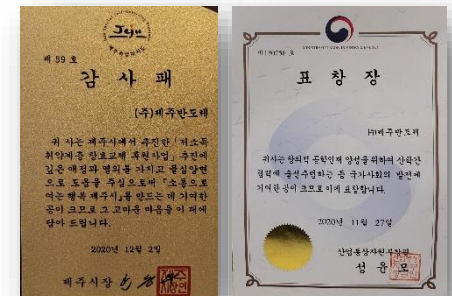 Jeju
제 59 호
감 사 패
(주)제주반도체
귀 사는 제주시에서 추진한 「저소득
취약계층 참효교제 후원사업」 추진에
깊은 애정과 열의를 가지고 물심양면
으로 도움을 주심으로써 「소통으로
여는 행복 제주시」를 만드는 데 기여한
공이 크므로 그 고마운 마음을 이 패에
담아 드립니다.
2020년 12월 2일
제주시장
표 창 장
㈜제주반도체
귀사는 창의적 공학인재 양성을 위하여 산학간
협력에 솔선수범하는 등 국가사회의 발전에
기여한 공이 크므로 이에 표창합니다.
2020년 11월 27일
산업통상자원부장관
성 윤 모